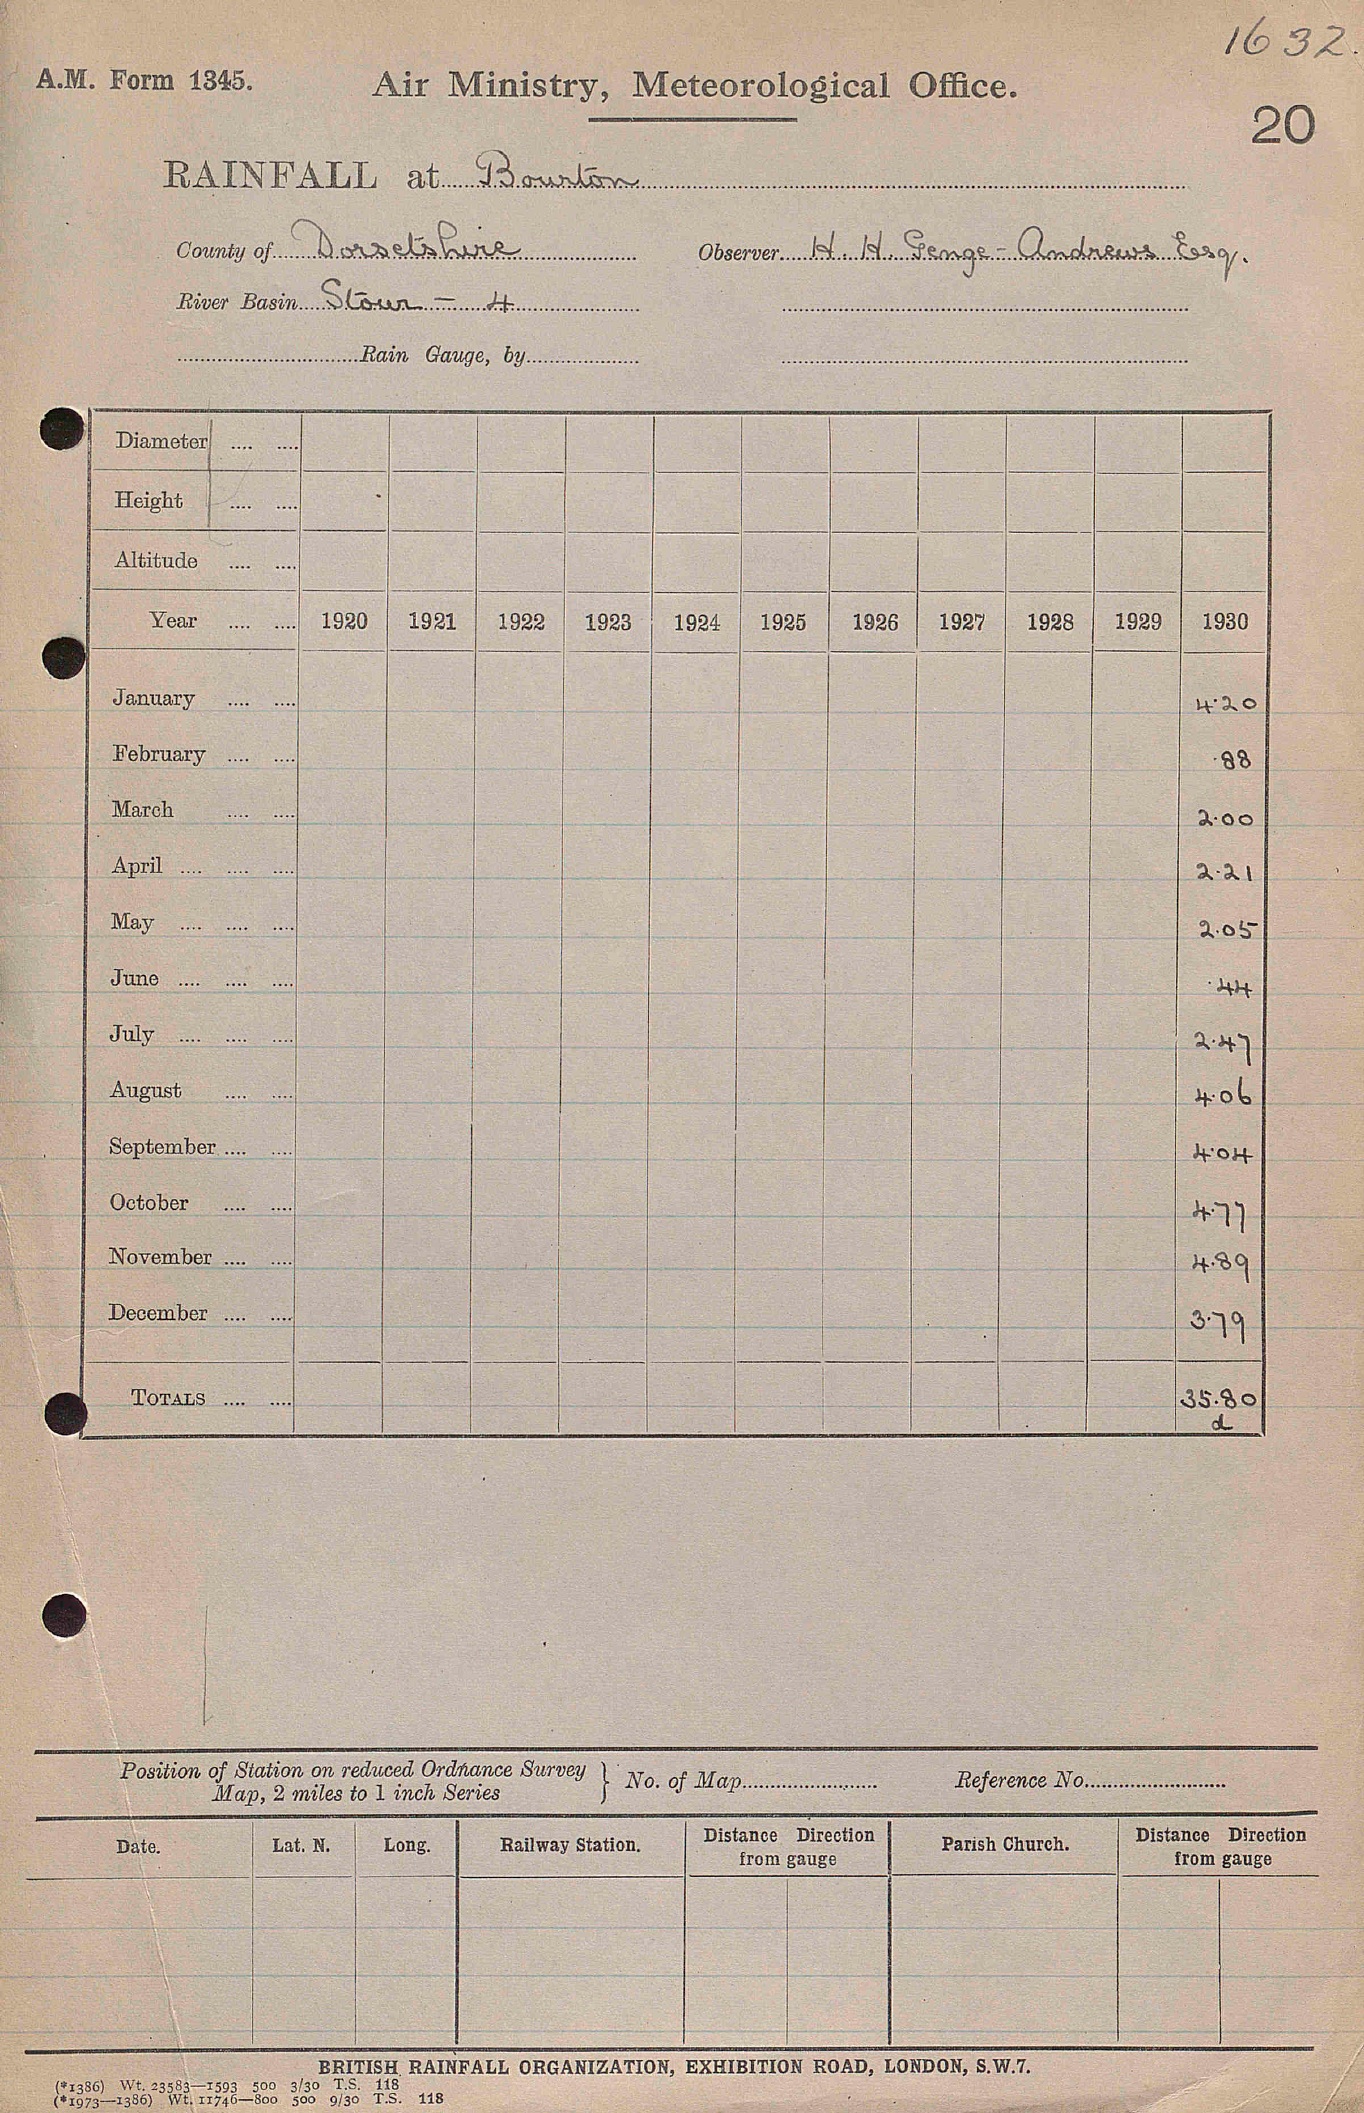 1632.
A.M. Form 1345.
Air Ministry, Meteorological Office.
20
RAINFALL at Bourton
County of Dorsetshire
Observer H. H. Genge-Andrews Esq.
River Basin Stour - 4
Rain Gauge, by
Diameter
Height
Altitude
Year 1920 1921 1922 1923 1924 1925 1926 1927 1928 1929 1930
January 4.20
February .88
March 2.00
April 2.21
May 2.05
June .44
July 2.47
August 4.06
September 4.04
October 4.77
November 4.89
December 3.79
TOTALS 35.80
d
Position of Station on reduced Ordnance Survey
Map, 2 miles to 1 inch Series
No. of Map
Reference No.
Date. Lat. N. Long. Railway Station. Distance Direction from gauge Parish Church. Distance Direction from gauge
BRITISH RAINFALL ORGANIZATION, EXHIBITION ROAD, LONDON, S.W.7.
(*1386) Wt. 23583—1593 500 3/30 T.S. 118
(*1973—1386) Wt. 11746—800 500 9/30 T.S. 118